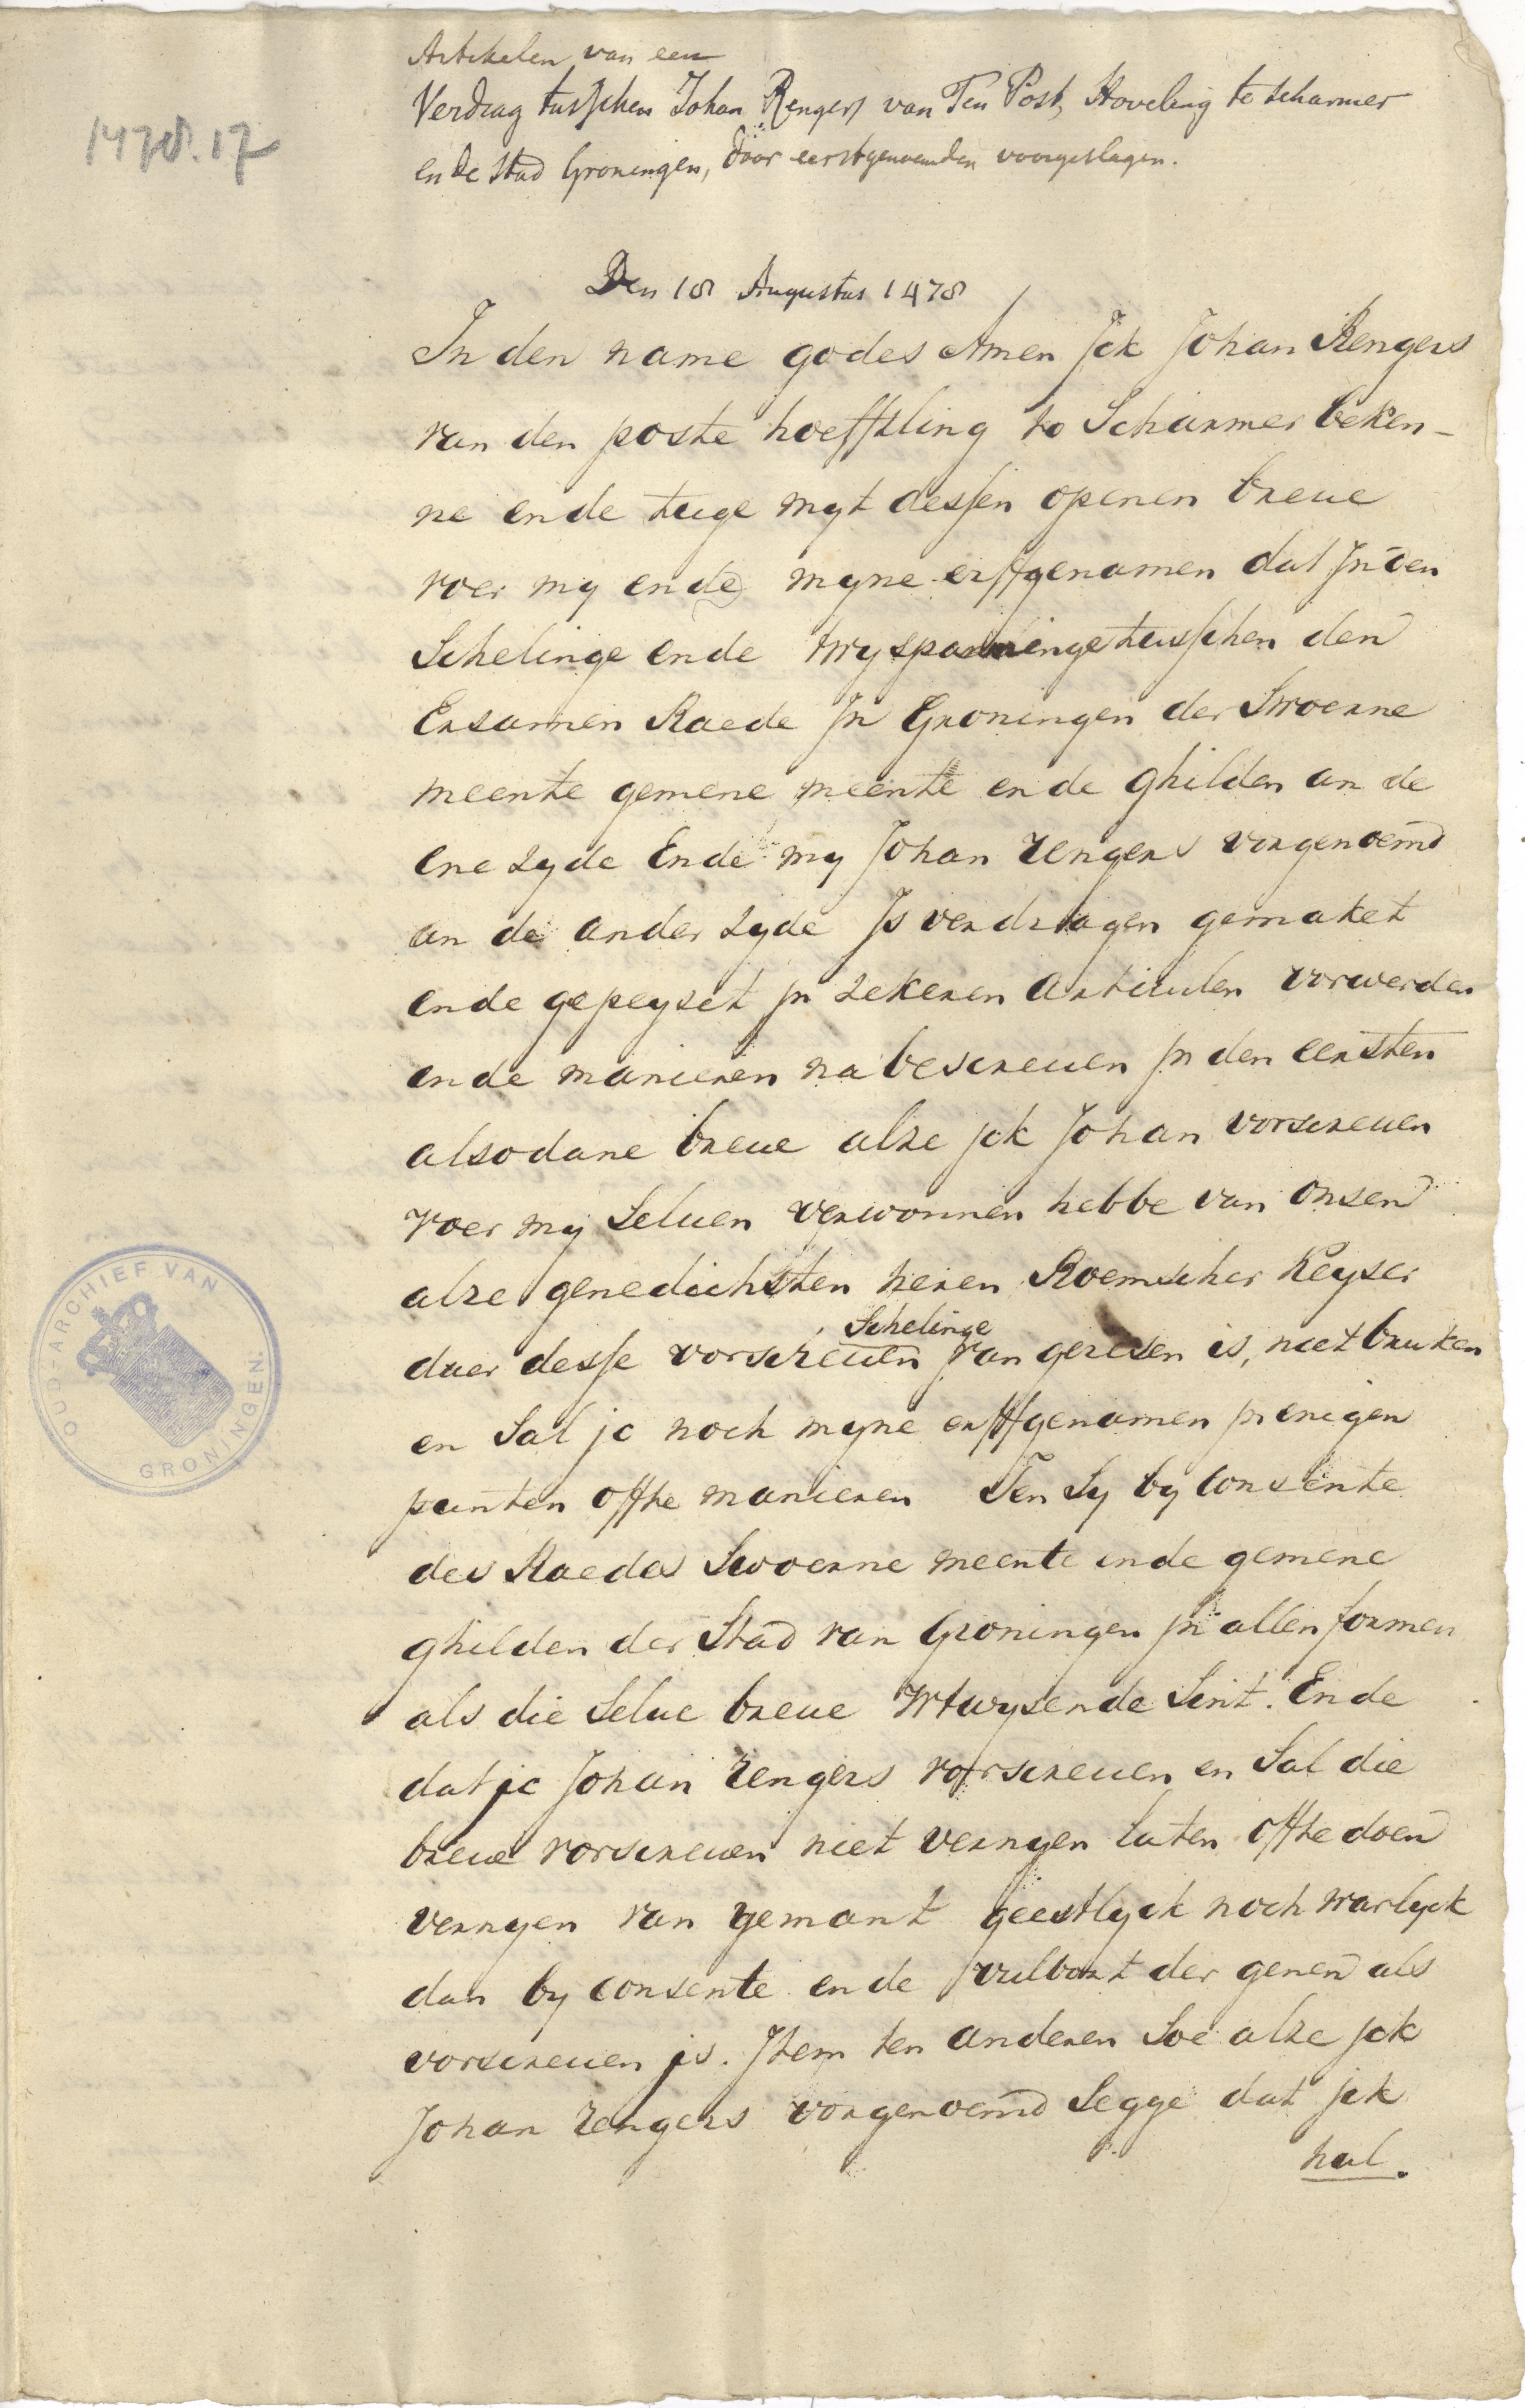 Artikelen van een
Verdrag tusschen Johan Rengers van Ten Post, Hoveling te Scharmer
en de Stad Groningen, door eerstgenoemden voorgeslagen.
1478.17
Den 18 Augustus 1478
In den name godes Amen Jck Johan Rengers
van den poste hoeffling to Scharmer beken-
ne ende tuige myt dessen openen breue
voer my ende myne erffgenamen dat Jn den
Schelinge ende twyspanninge tusschen den
Ersamen Raede Jn Groningen der Swoerne
meente gemene meente ende ghilden an de
ene zyde Ende my Johan rengers vorgenoemd
an de ander zyde Js verdragen gemaket
ende gepeyset jn zekeren articulen vorwerden
ende manieren na bescreuen jn den eersten
alsodane breue alze jck Johan vorscreuen
voer my Seluen verwonnen hebbe van onsen
alre genedichsten heren Roemscher Keyser
daer desse vorscreuen Schelinge van geresen is, niet bruken
en Sal jc noch myne erffgenamen jn enigen
punten offte manieren Ten Sy by consente
des Raedes Swoerne meente ende gemene
ghilden der Stad van Groningen jn allen formen
als die Selue breue vtwysende Sint. Ende
dat jc Johan rengers vorscreuen en Sal die
breue vorscreuen niet vernyen laten offte doen
vernyen van yemant geestlyck noch warlyck
dan by consente ende vulbort der genen als
vorscreuen js. Jtem ten anderen Soe alze jck
Johan rengers vorgenoemd Segge dat jck
hal.
OUD-ARCHIEF VAN
GRONINGEN.